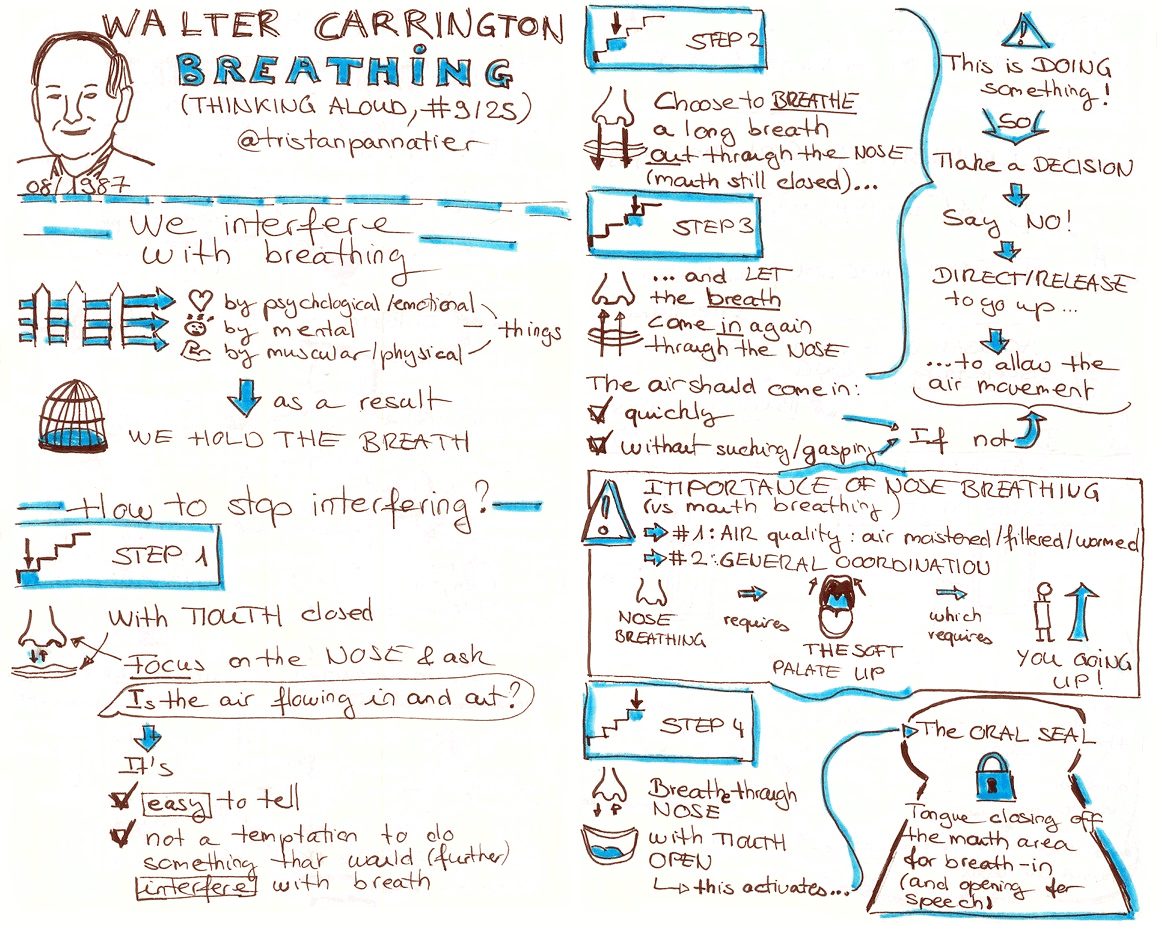 WALTER CARRINGTON
BREATHING
(THINKING ALOUD, #9/25)
@tristanpannatier
08/1987
We interfere
with breathing
by psychological/emotional
by mental
by muscular/physical
things
as a result
WE HOLD THE BREATH
How to stop interfering?
STEP 1
With MOUTH closed
Focus on the NOSE & ask
Is the air flowing in and out?
It's
easy to tell
not a temptation to do
something that would (further)
interfere with breath
STEP 2
Choose to BREATHE
a long breath
out through the NOSE
(mouth still closed)...
STEP 3
... and LET
the breath
come in again
through the NOSE
The air should come in:
quickly
without sucking/gasping
If not
This is DOING
something!
SO
Make a DECISION
Say NO!
DIRECT/RELEASE
to go up...
...to allow the
air movement
IMPORTANCE OF NOSE BREATHING
(vs mouth breathing)
#1: AIR quality: air moistered/filtered/warmed
#2: GENERAL COORDINATION
NOSE
BREATHING
requires
THE SOFT
PALATE UP
which
requires
YOU GOING
UP!
STEP 4
Breathe through
NOSE
with MOUTH
OPEN
this activates...
The ORAL SEAL
Tongue closing off
the mouth area
for breath-in
(and opening for
speech)